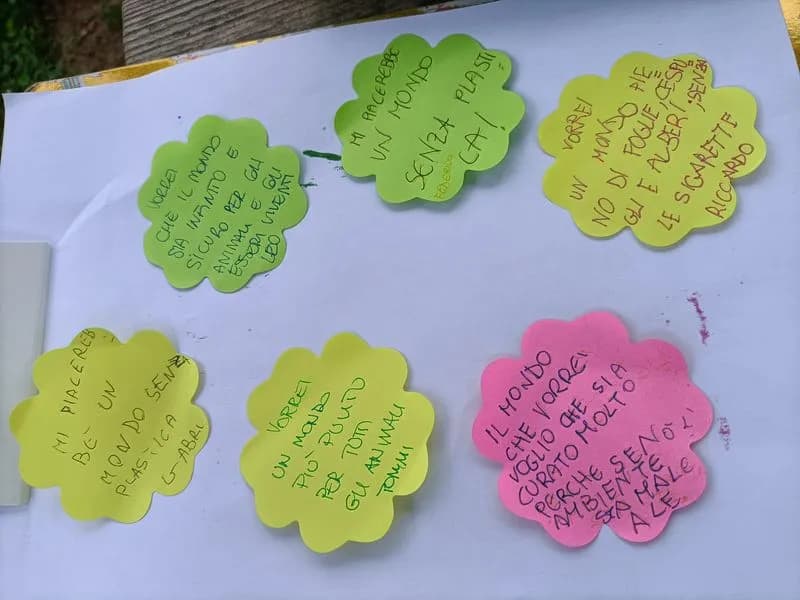 VORREI
CHE IL MONDO
SIA INFINITO E
SICURO PER GLI
ANIMALI E GLI
ESSERI VIVENTI
LEO
MI PIACEREBBE
UN MONDO
SENZA PLASTI
CA!
FEDERICO
VORREI
UN MONDO PIE
NO DI FOGLIE, CESPU
GLI E ALBERI, SENZA
LE SIGARETTE
RICCARDO
MI PIACEREB
BE UN
MONDO SENZA
PLASTICA
GABRI
VORREI
UN MONDO
PIÙ PULITO
PER TUTI
GLI ANIMALI
TOMMI
IL MONDO
CHE VORREI
VOGLIO CHE SIA
CURATO MOLTO
PERCHE SENÒ L'
AMBIENTE
STA MALE
ALE